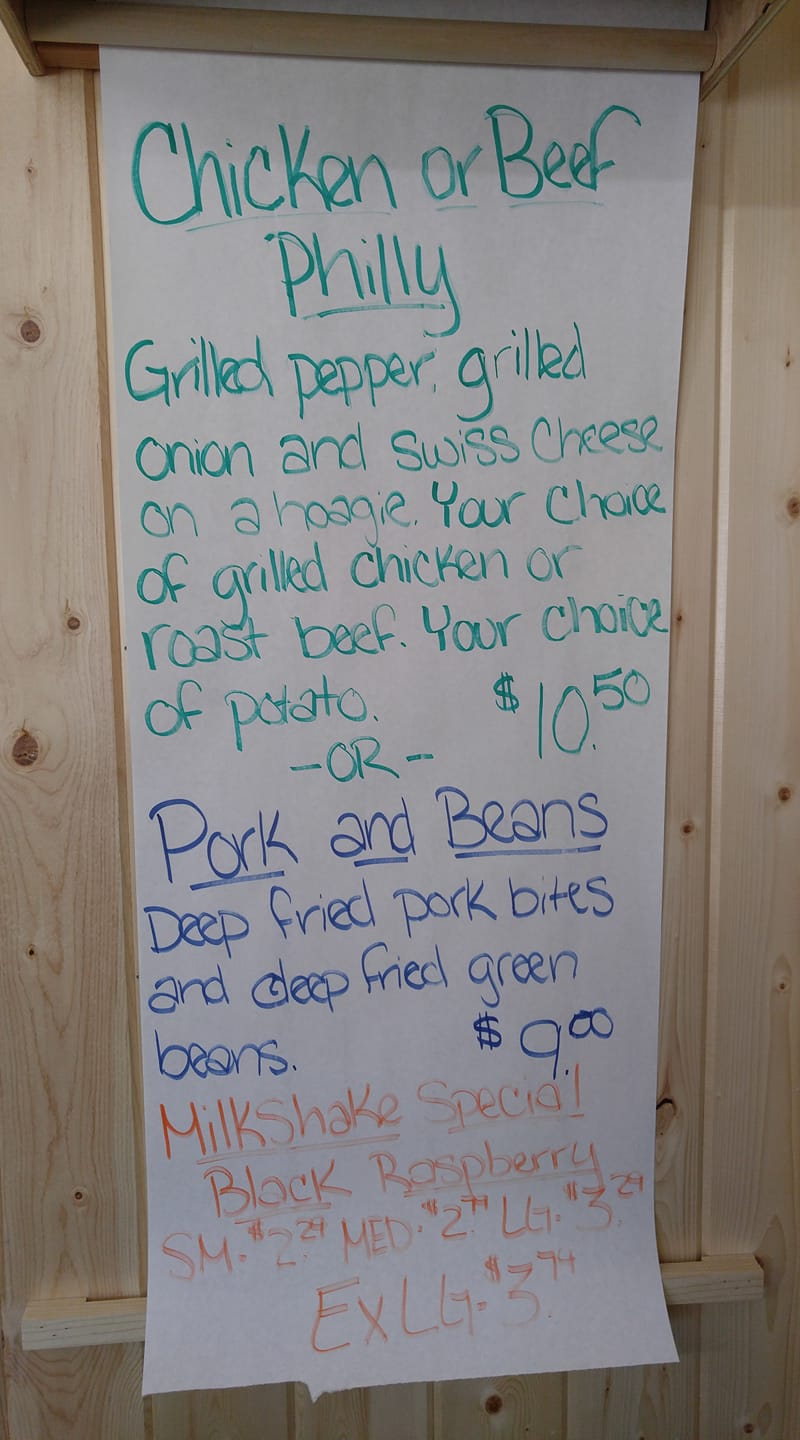 Chicken or Beef
Philly
Grilled pepper, grilled
onion and swiss cheese
on a hoagie. Your choice
of grilled chicken or
roast beef. Your choice
of potato. $10.50
-OR-
Pork and Beans
Deep fried pork bites
and deep fried green
beans. $9.00
MilkShake Special
Black Raspberry
SM. $2.29 MED. $2.79 LG. $3.29
Ex LG. $3.74